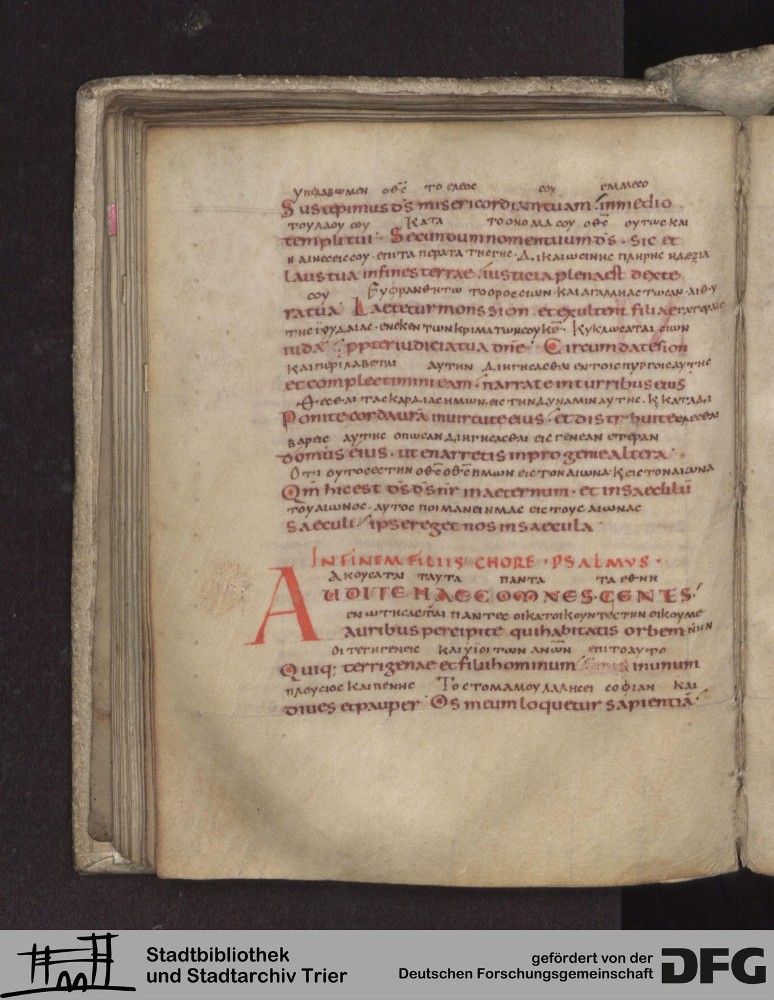 ΥΠΕΛΑΒΩΜΕΝ ΟΘС ΤΟ ΕΛΕΟС СΟΥ ΕΜΜΕСΟ
Suscepimus ds misericordiam tuam · in medio
ΤΟΥ ΛΑΟΥ СΟΥ ΚΑΤΑ ΤΟ ΟΝΟΜΑ СΟΥ ΟΘС ΟΥΤΩС ΚΑΙ
templi tui · Secundum nomen tuum ds · sic et
Η ΑΙΝΕСΕΙС СΟΥ · ΕΠΙ ΤΑ ΠΕΡΑΤΑ ΤΗС ΓΗС · ΔΙΚΑΙΩСΙΝΗС ΠΛΗΡΗС Η ΔΕΞΙΑ
laus tua in fines terrae · iusticia plena est dexte
СΟΥ ΕΥΦΡΑΝΘΗΤΩ ΤΟ ΟΡΟС СΙΩΝ · ΚΑΙ ΑΓΑΛΛΗΑСΤΩСΑΝ · ΑΙ ΘΥ
ra tua Laetetur mons sion · et exultent filiae
ΤΗС ΙΟΥΔΑΙΑС · ΕΝΕΚΕΝ ΤΩΝ ΚΡΙΜΑΤΩΝ СΟΥ ΚΕ · ΚΥΚΛΩСΑΤΑΙ СΙΩΝ
iudae · ppter iudicia tua dne · Circumdate sion
ΚΑΙ ΠΕΡΙΛΑΒΕΤΑΙ ΑΥΤΗΝ ΔΙΗΓΗСΑСΘΑΙ ΕΝ ΤΟΙС ΠΥΡΓΟΙС ΑΥΤΗС
et complectimini eam · narrate in turribus eius
ΘΕСΘΑΙ ΤΑС ΚΑΡΔΙΑС ΗΜΩΝ · ΕΙС ΤΗΝ ΔΥΝΑΜΙΝ ΑΥΤΗС · Κ ΚΑΤΑΔΙ
Ponite corda ura in uirtute eius · et distribuite
ΒΑΡΕΙС ΑΥΤΗС ΟΠΩС ΑΝ ΔΙΗΓΗСΑСΘΑΙ ΕΙС ΓΕΝΕΑΝ ΕΤΕΡΑΝ
domus eius · ut enarretis in progenie altera ·
ΟΤΙ ΟΥΤΟС ΕСΤΗΝ ΟΘС ΟΘС ΗΜΩΝ ΕΙС ΤΟΝ ΑΙΩΝΑ · Κ ΕΙС ΤΟΝ ΑΙΩΝΑ
Qm hic est ds ds nr in aeternum · et in saeculu
ΤΟΥ ΑΙΩΝΟС · ΑΥΤΟС ΠΟΙΜΑΝΕΙ ΗΜΑС ΕΙС ΤΟΥС ΑΙΩΝΑС
saeculi · ipse reget nos in saecula ·
IN FINEM FILIIS CHORE · PSALMVS ·
ΑΚΟΥСΑΤΑΙ ΤΑΥΤΑ ΠΑΝΤΑ ΤΑ ΕΘΝΗ
AUDITE HAEC OMNES · GENTES ·
ΕΝΩΤΗСΑСΘΑΙ ΠΑΝΤΕС ΟΙ ΚΑΤΟΙΚΟΥΝΤΕС ΤΗΝ ΟΙΚΟΥΜΕ
auribus percipite qui habitatis orbem ΝΗΝ
ΟΙ ΤΕ ΓΗΓΕΝΕΙС ΚΑΙ ΥΙΟΙ ΤΩΝ ΑΝΩΝ ΕΠΙ ΤΟ ΑΥΤΟ
Quiq; terrigenae et filii hominum in unum
ΠΛΟΥСΙΟС ΚΑΙ ΠΕΝΗС ΤΟ СΤΟΜΑ ΜΟΥ ΛΑΛΗСΕΙ СΟΦΙΑΝ ΚΑΙ
diues et pauper Os meum loquetur sapientiā ·
Stadtbibliothek
und Stadtarchiv Trier
gefördert von der
Deutschen Forschungsgemeinschaft
DFG